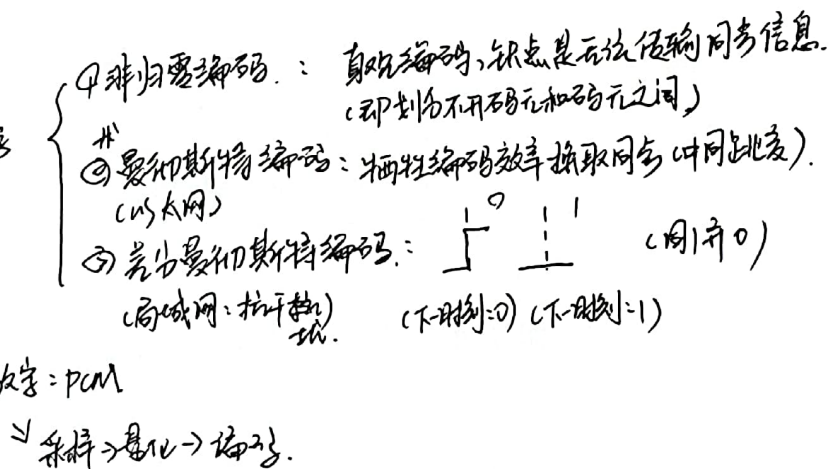 ①非归零编码.： 真效编码，缺点是无法传输同步信息.
（即划分不开码元和码元之间）
②曼彻斯特编码：牺牲编码效率换取同步（中间跳变）.
（以太网）
0 1
③差分曼彻斯特编码.： （同1异0）
（局域网：抗干扰） （下一时刻=0）（下一时刻=1）
数字：PCM
采样→量化→编码.